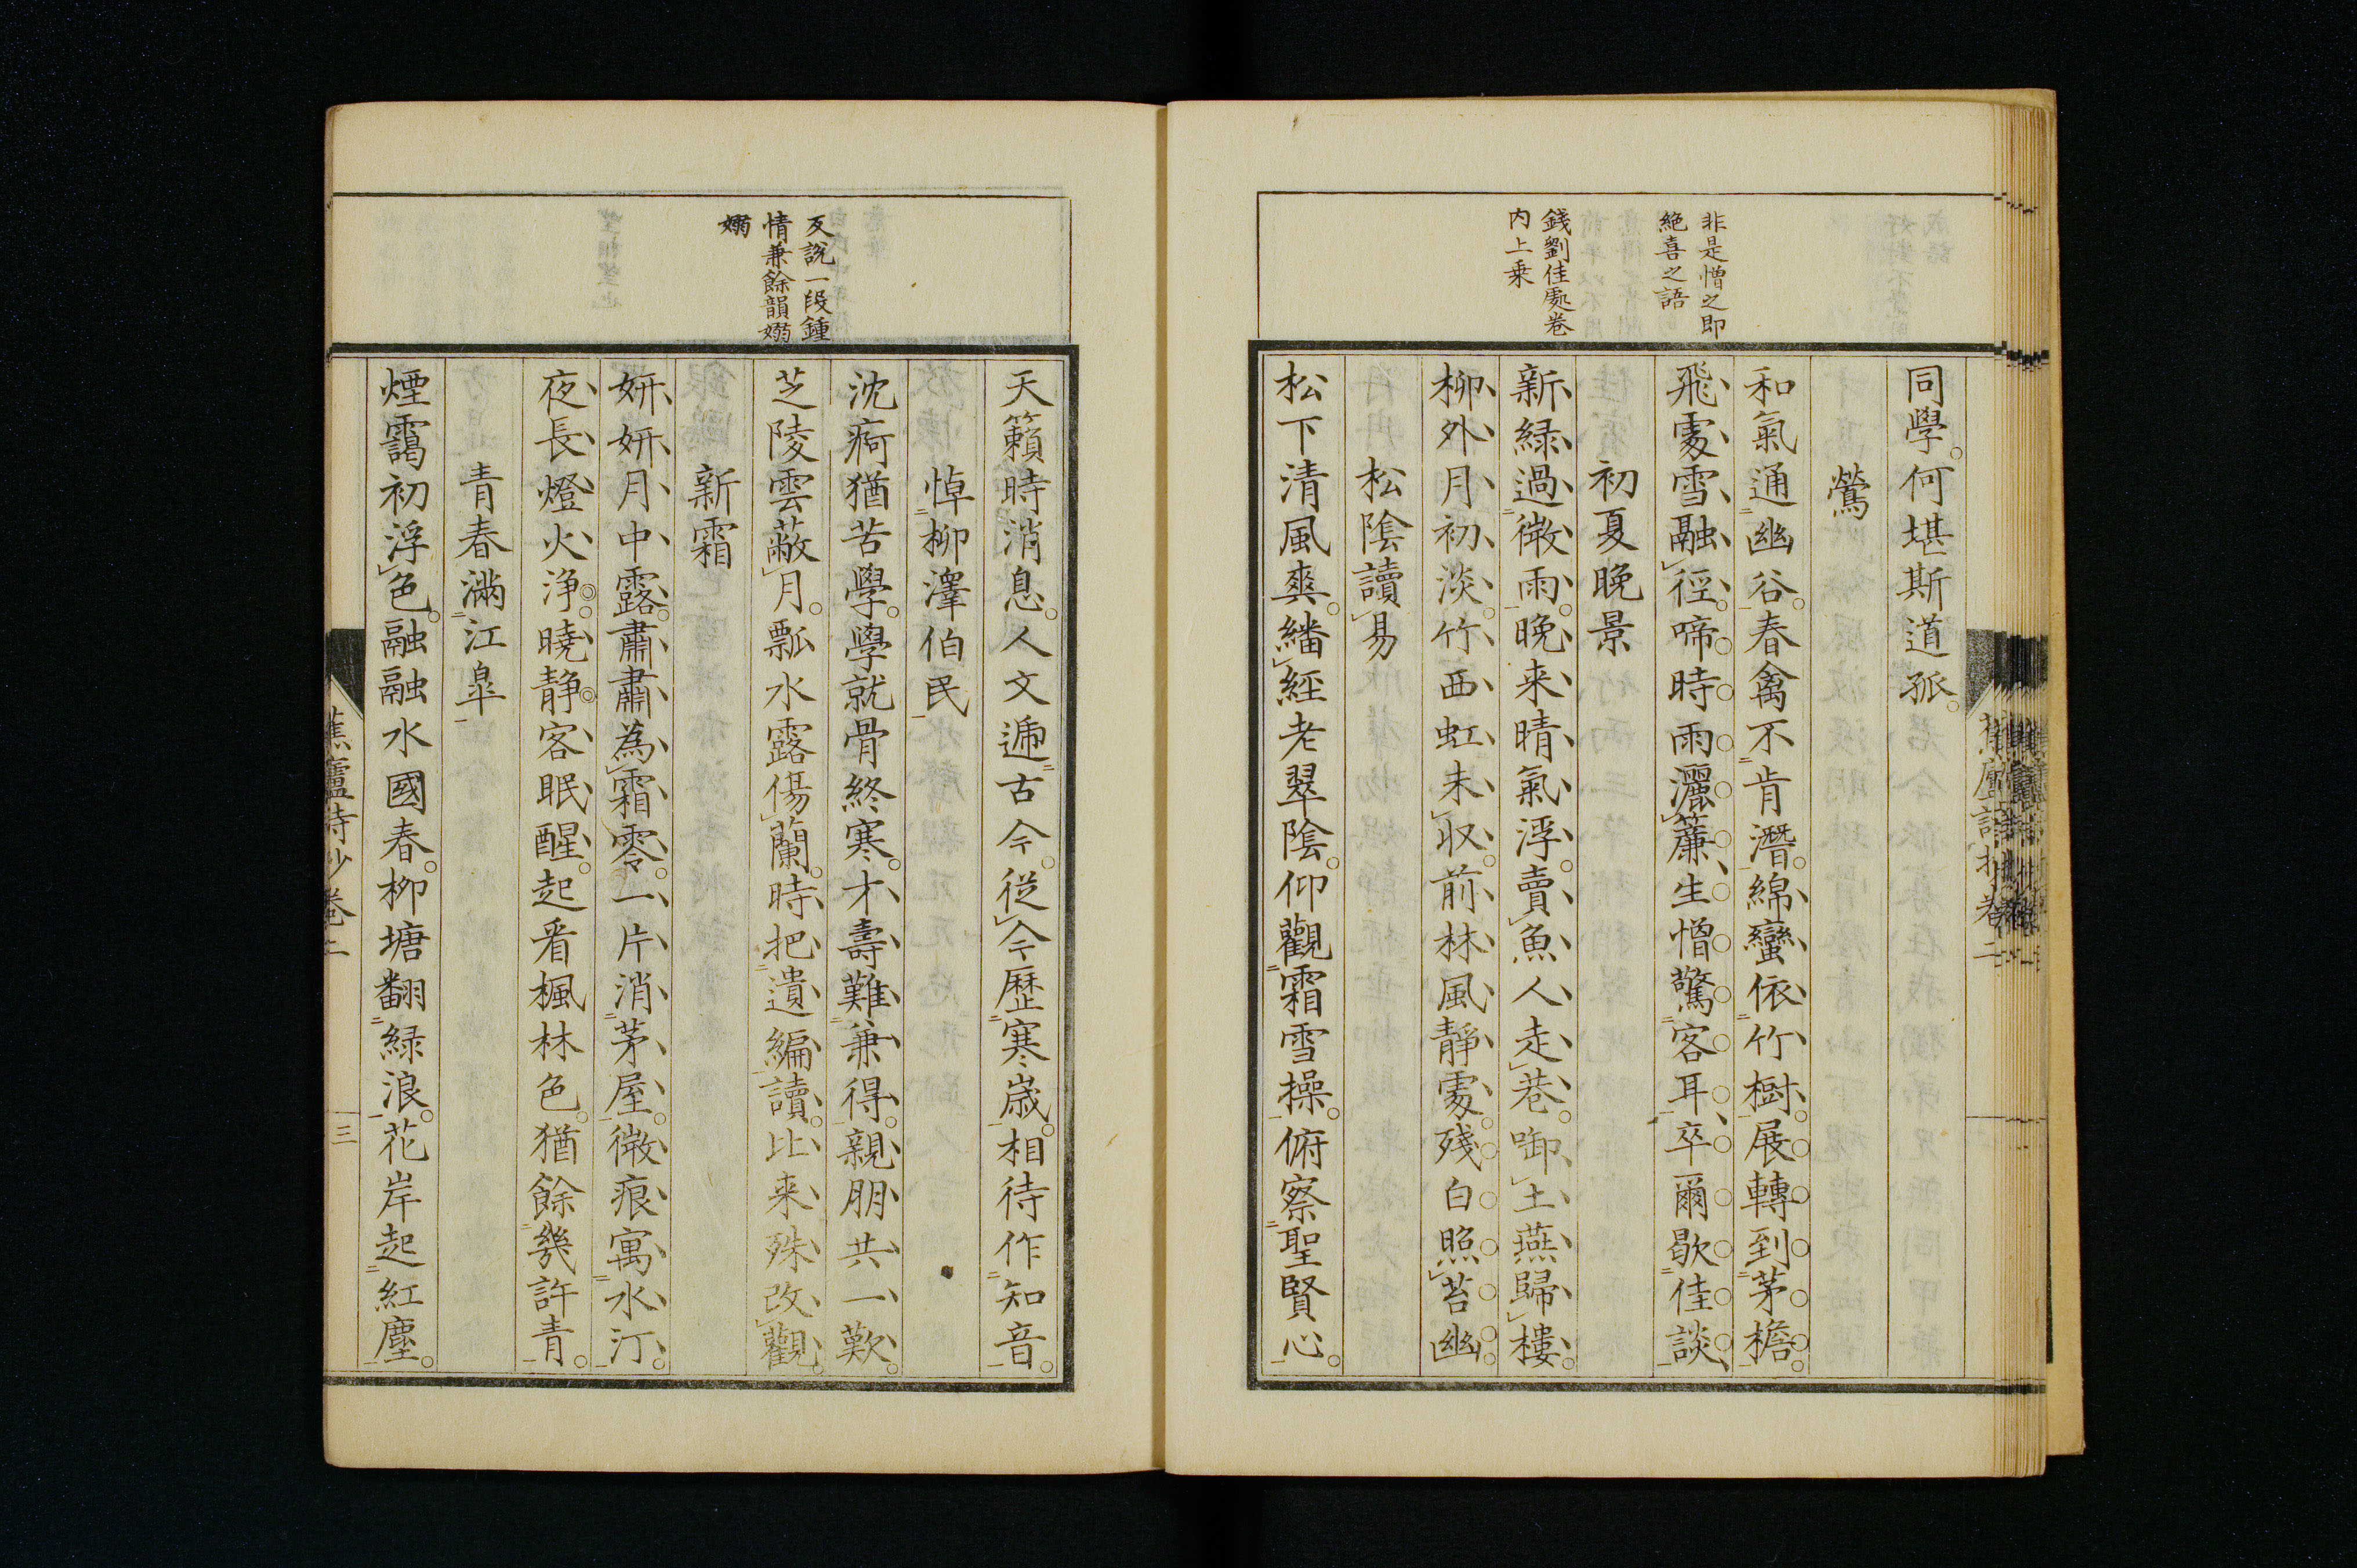 同學。何堪斯道孤。
鶯
和氣通幽谷。春禽不肯潛。綿蠻依竹樹。展轉到茅檐。
飛處雪融徑。啼時雨灑簾。生憎驚客耳。卒爾歇佳談。
初夏晚景
新綠過微雨。晚来晴氣浮。賣魚人走巷。啣土燕歸樓。
柳外月初淡。竹西虹未収。前林風靜處。殘白照苔幽。
松陰讀易
松下清風爽。繙經老翠陰。仰觀霜雪操。俯察聖賢心。
非是憎之即
絕喜之語
錢劉佳處卷
内上乗
蕉廬詩抄卷二
天籟時消息。人文遞古今。從今歷寒歳。相待作知音。
悼柳澤伯民
沈痾猶苦學。學就骨終寒。才壽難兼得。親朋共一歎。
芝陵雲蔽月。瓢水露傷蘭。時把遺編讀。比来殊改觀。
新霜
妍妍月中露。肅肅為霜零。一片消茅屋。微痕寓水汀。
夜長燈火淨。曉静客眠醒。起看楓林色。猶餘幾許青。
青春滿江皐
煙靄初浮色。融融水國春。柳塘翻緑浪。花岸起紅塵。
反說一段鍾
情兼餘韻嫋
嫋
蕉廬詩抄卷二
三